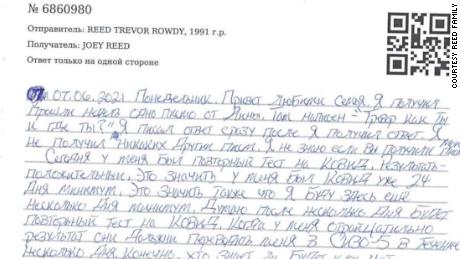 № 6860980
Отправитель: REED TREVOR ROWDY, 1991 г.р.
Получатель: JOEY REED
Ответ только на одной стороне
COURTESY REED FAMILY
07.06.2021 Понедельник. Привет любимии семья. Я получил
прошли неделя одно писмо от Лины. Там написен - "Тревор как ты
и где ты?" Я писал ответ сразу после я получил ответ. Я
не получил никаких других писм. Я не знаю если вы получили
Сегодня у меня был повторный тест на КОВИД. Результать -
положительний. Это значить у меня был КОВИД уже 24
дня минимум. Это значить также что я буду здесь еше
несколько дня минимум. Думаю после несколько дня будет
повторный тест на КОВИД. Когда у меня отрицательно
результат они должни переводать меня в СИЗО-5 в течение
несколько дня. Конечно, кто знает